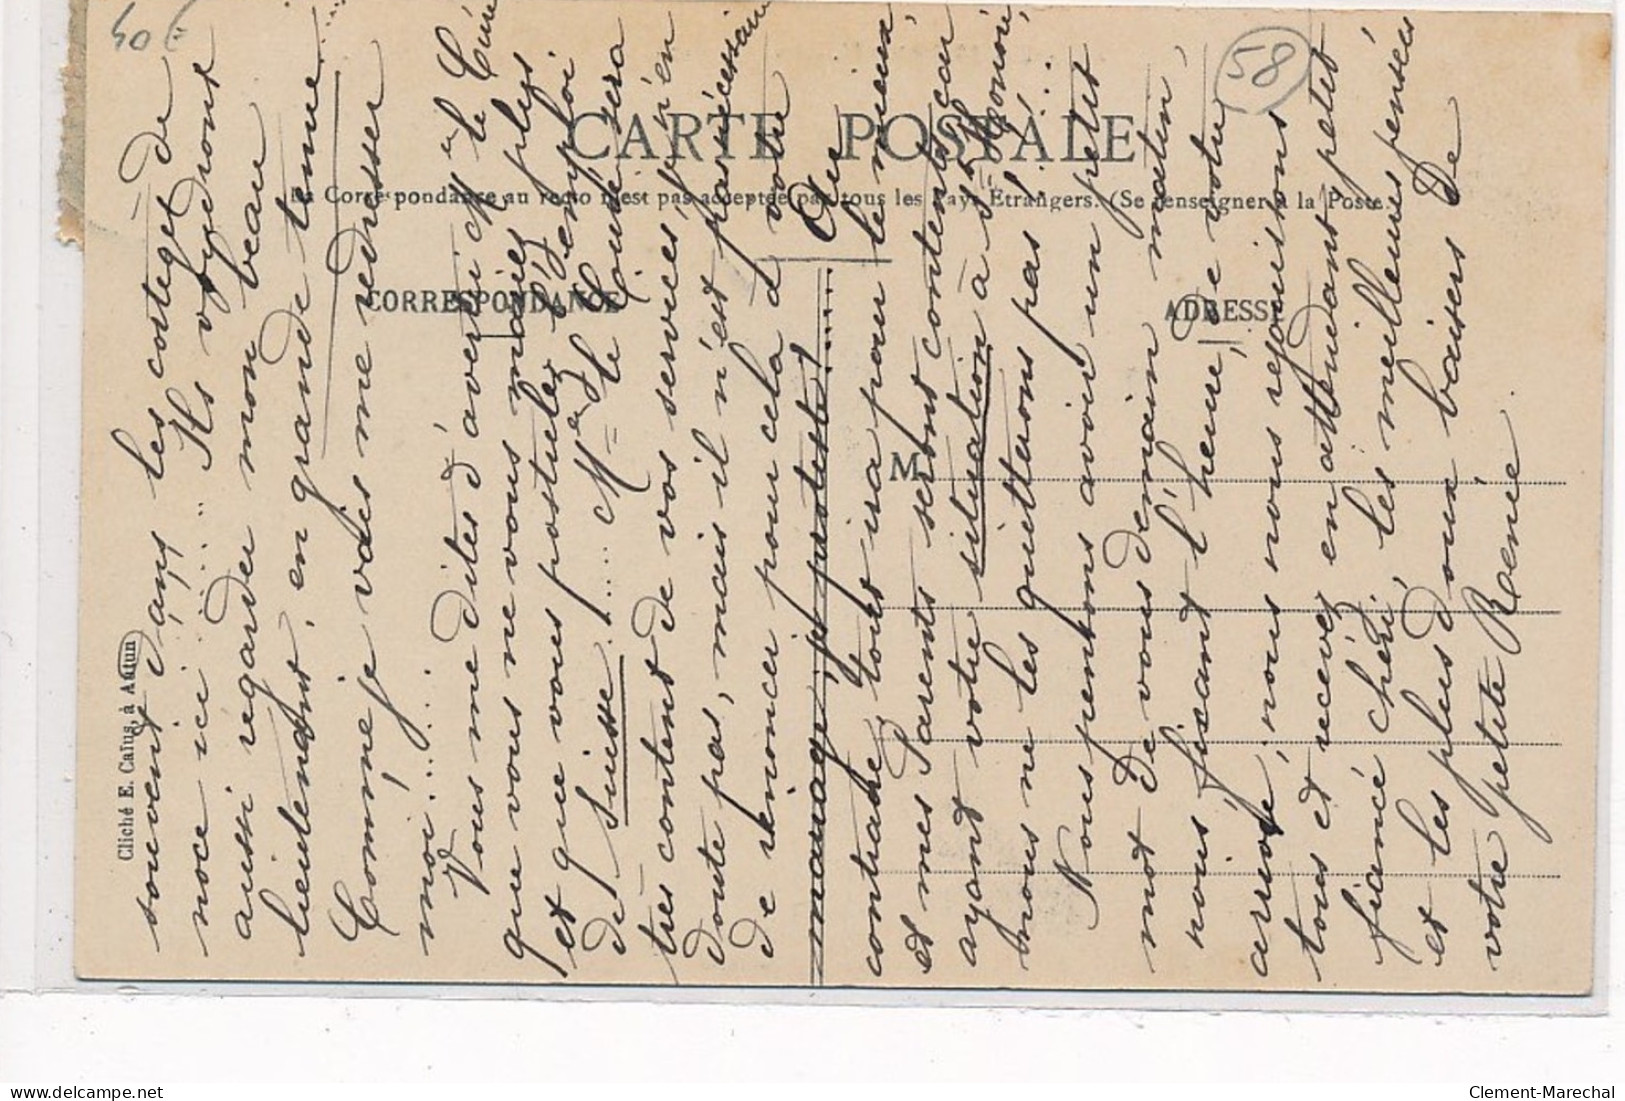 40 E
58
CARTE POSTALE
La Correspondance au recto n'est pas acceptée par tous les Pays Étrangers. (Se renseigner à la Poste.
CORRESPONDANCE
ADRESSE
M
Cliché E. Caïus, à Autun
souvent dans les corteges de
noce ici ..... Ils voyedront
aussi regarder mon beau
lieutenant, en grande tenue ....
Comme je vais me redresser
moi ......
Vous me dites d'averti Mr le Curé
que vous ne vous mariez plus
et que vous postulez l'emploi
de Suisse ..... Mr le Curé sera
très content de vos services j'n'en
doute pas, mais il n'est pas nécessaire
de renoncer pour cela à votre
mariage, je proteste! ..... Au
contraire, tout ira pour le mieux
et mes Parents seront contents car
ayant votre situation à St Honoré,
nous ne les quitterons pas! ...
Nous pensons avoir un petit
mot de vous demain matin,
nous fixant l'heure, de votre
arrivée, nous nous rejouissons
tous et recevez en attendant petit
fiancé chéri, les meilleures pensées
et les plus doux baisers de
votre petite Renée.
Clement-Marechal
delcampe.net